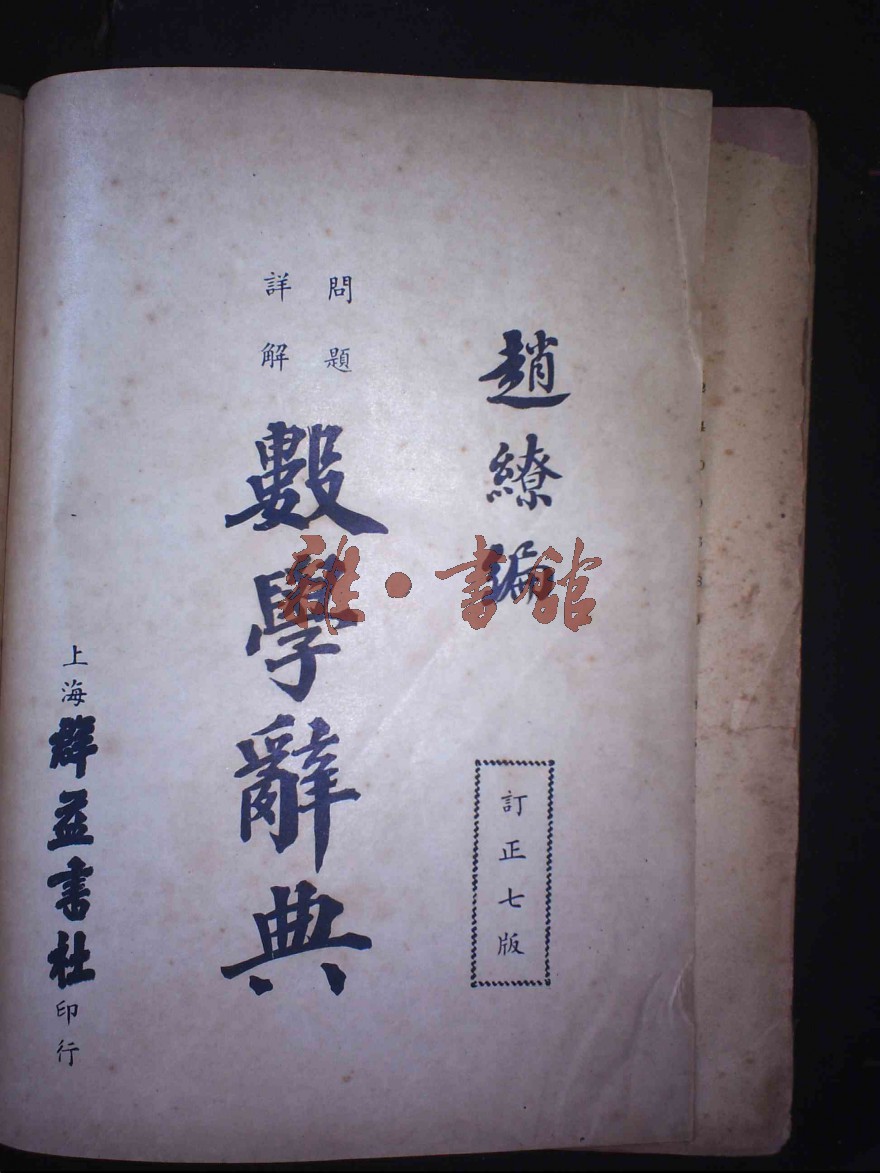 趙繚編
訂正七版
問題
詳解
數學辭典
上海群益書社印行
雜·書館